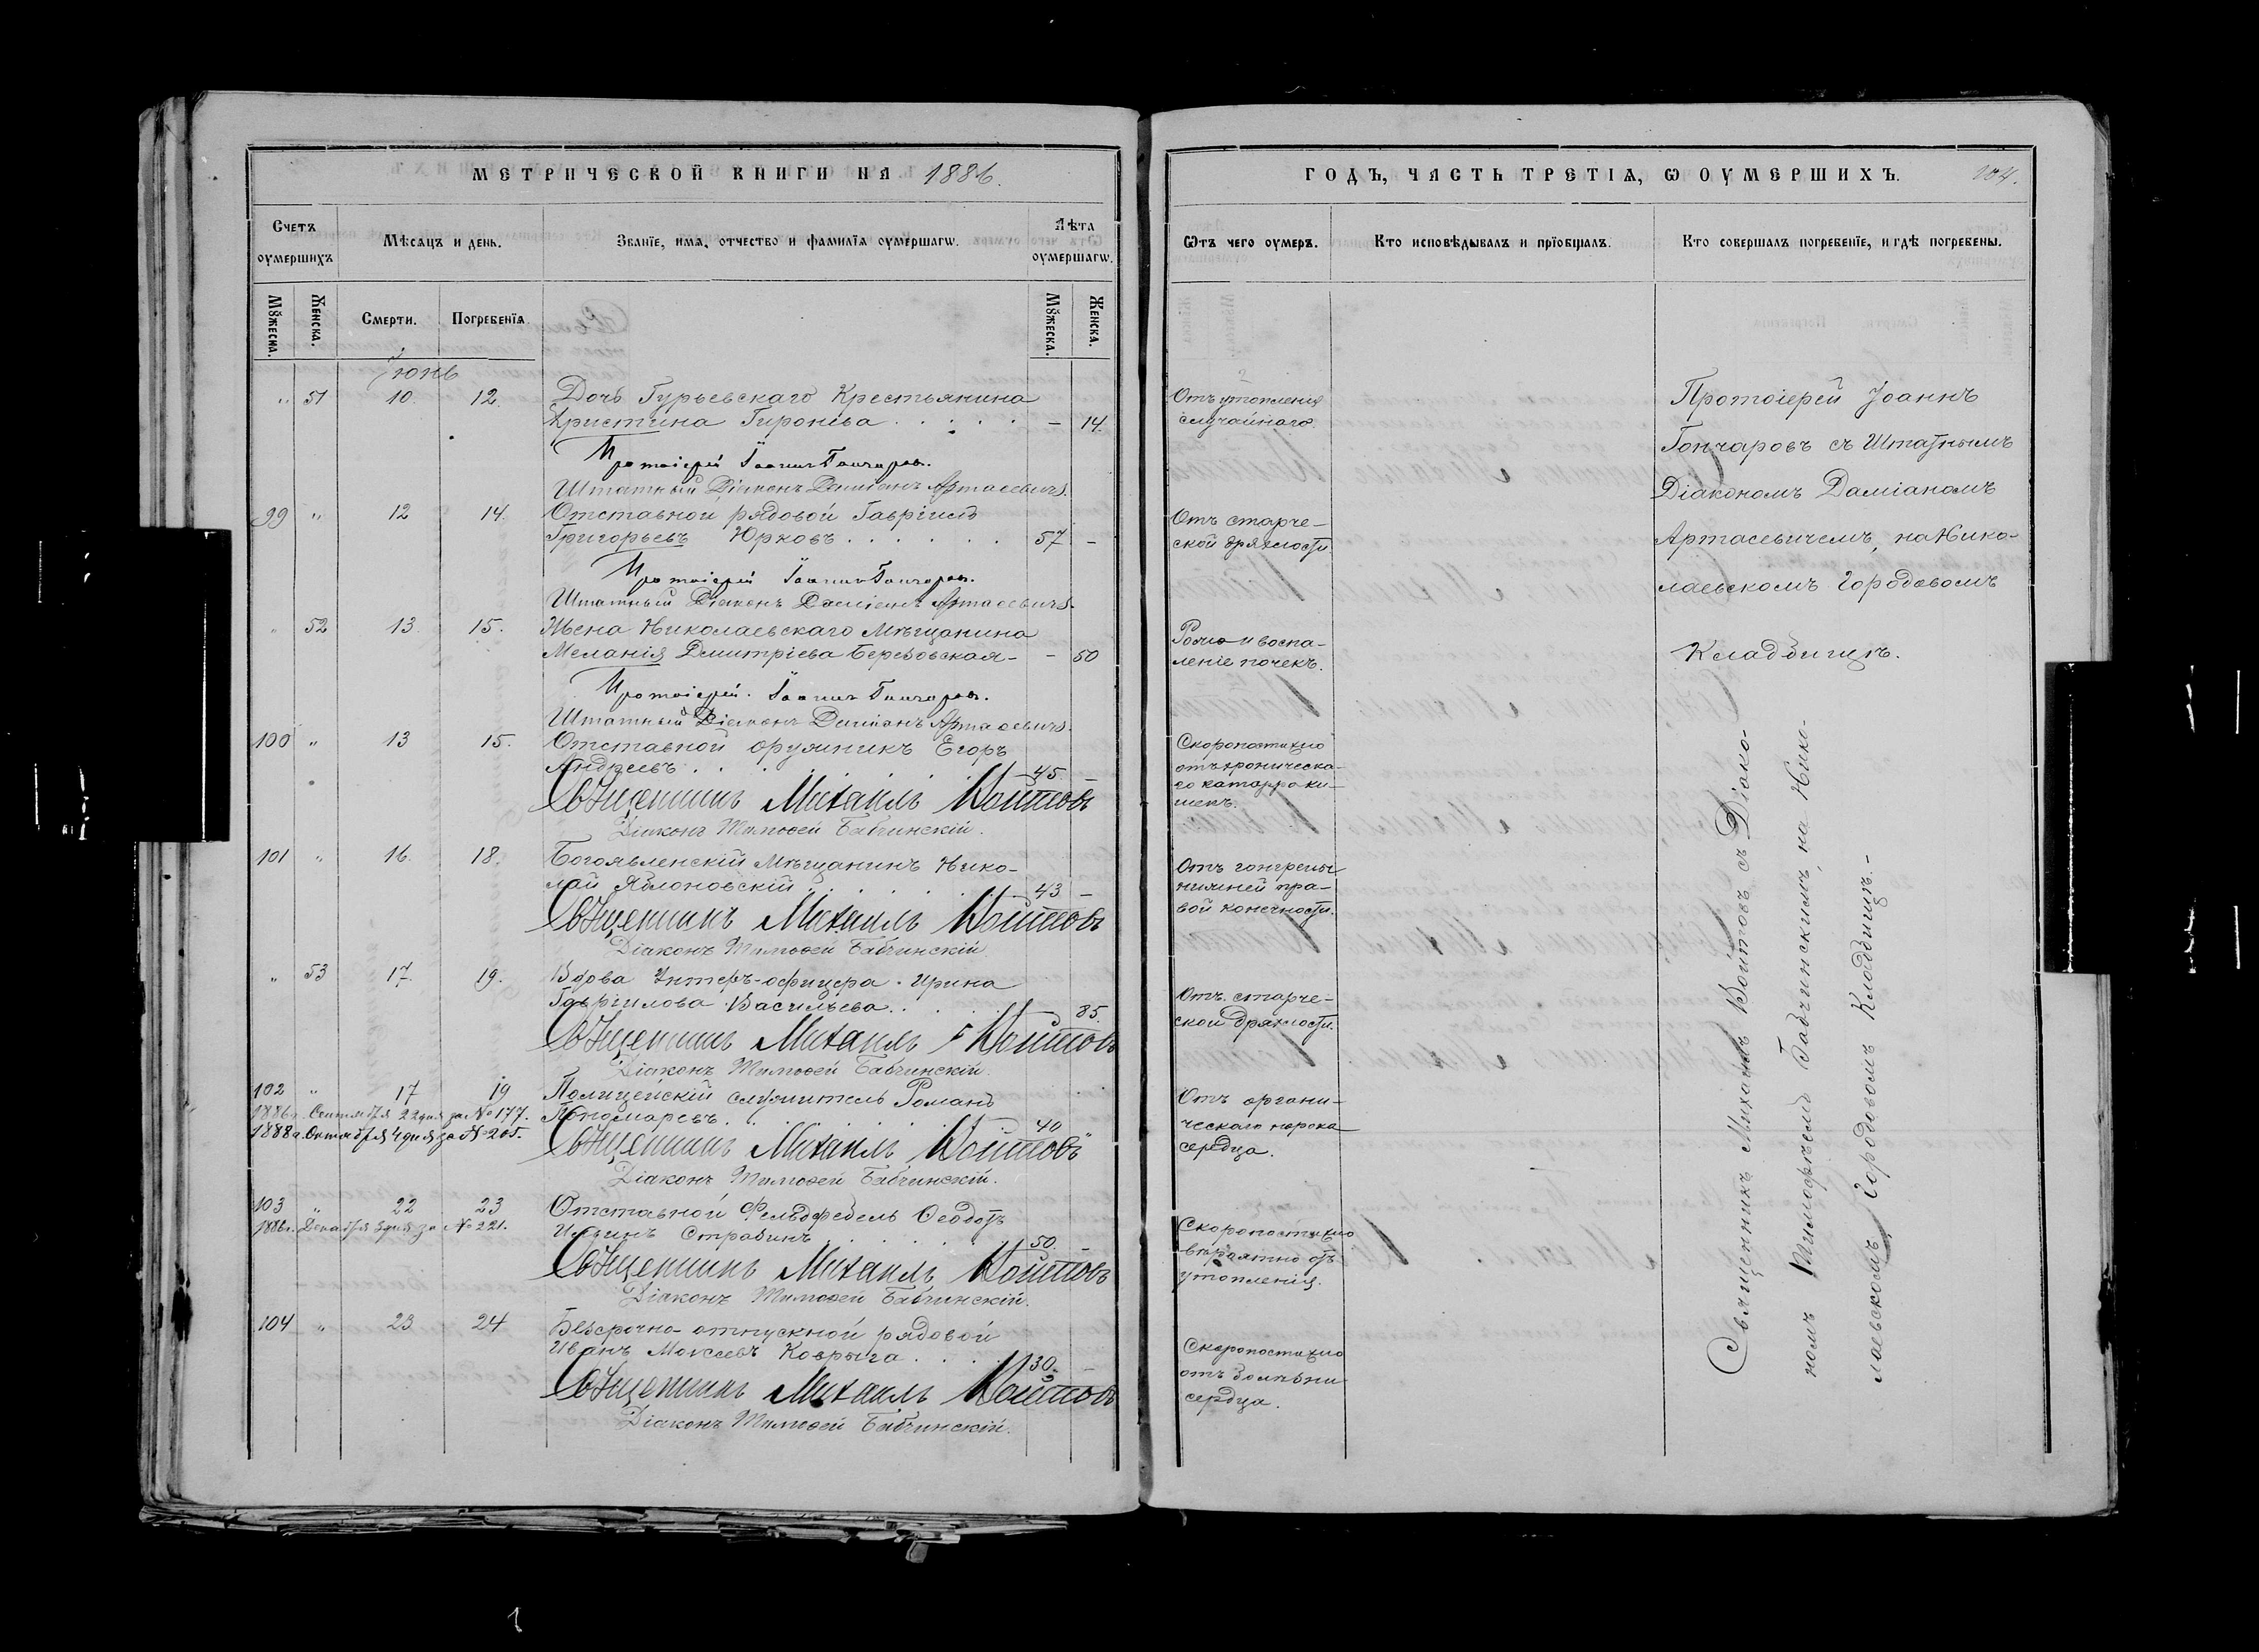 МЕТРИЧЕСКОЙ КНИГИ НА 1886.
Счетъ оумершихъ
Мѣсяцъ и день.
Званїе, имѧ, отчество и фамилїѧ оумершагѡ.
Лѣта оумершагѡ.
Мꙋжеска.
Женска.
Смерти.
Погребенїѧ.
Мꙋжеска.
Женска.
Іюнь
„ 51 10. 12. Дочь Гурьевскаго Крестьянина
Христина Гироніва . . . . . – 14.
Протоіерей Іоаннъ Гончаровъ.
Штатный Діаконъ Даміанъ Артасевичъ.
99 „ 12 14. Отставной рядовой Гавріилъ
Григорьевъ Юрковъ . . . . . . 57 –
Протоіерей Іоаннъ Гончаровъ.
Штатный Діаконъ Даміанъ Артасевичъ.
„ 52 13 15. Жена Николаевскаго Мѣщанина
Меланія Димитріева Березовская – – 50
Протоіерей Іоаннъ Гончаровъ.
Штатный Діаконъ Даміанъ Артасевичъ.
100 „ 13 15. Отставной оружникъ Егоръ
Андреевъ . . . . . 45. –
Священникъ Михаилъ Войтовъ
Діаконъ Тимофей Бабчинскій.
101 „ 16. 18. Богоявленскій Мѣщанинъ Нико-
лай Яблоновскій . . . . . 43 –
Священникъ Михаилъ Войтовъ
Діаконъ Тимофей Бабчинскій
„ 53 17. 19. Вдова Унтеръ-офицера Ирина
Гавриилова Васильева . . . . – 85.
Священникъ Михаилъ Войтовъ
Діаконъ Тимофей Бабчинскій.
102 „ 17 19 Полицейскій служитель Романъ
1886 г. Сентября 22 дня за № 177. Пономаревъ . . . . . 40
1888 г. Октября 4 дня за № 205.
Священникъ Михаилъ Войтовъ
Діаконъ Тимофей Бабчинскій.
103 „ 22 23 Отставной Фельдфебель Ѳеодотъ
1886 г. Декабря 3 дня за № 221. Ильинъ Страбинъ . . . . . 50. –
Священникъ Михаилъ Войтовъ
Діаконъ Тимофей Бабчинскій.
104 „ 23 24 Безсрочно-отпускной рядовой
Иванъ Мокеевъ Коврыга . . . . 30. –
Священникъ Михаилъ Войтовъ
Діаконъ Тимофей Бабчинскій.
ГОДЪ, ЧАСТЬ ТРЕТІѦ, Ѡ ОУМЕРШИХЪ. 104.
Ѿтъ чего оумеръ.
Кто исповѣдывалъ и прїобщалъ.
Кто совершалъ погребенїе, и гдѣ погребены.
Отъ утопленія
случайнаго.
Отъ старче-
ской дряхлости.
Рожа и воспа-
леніе почекъ.
Скоропостижно
отъ хроническа-
го катарра ки-
шекъ.
Отъ гангрены
нижней пра-
вой конечности.
Отъ старче-
ской дряхлости.
Отъ органи-
ческаго порока
сердца.
Скоропостижно
вѣроятно отъ
утопленія.
Скоропостижно
отъ болѣзни
сердца.
Протоіерей Іоаннъ
Гончаровъ съ Штатнымъ
Діакономъ Даміаномъ
Артасевичемъ, на Нико-
лаевскомъ Городовомъ
Кладбищѣ.
Священникъ Михаилъ Войтовъ съ Діако-
номъ Тимофеемъ Бабчинскимъ, на Нико-
лаевскомъ Городовомъ Кладбищѣ.–